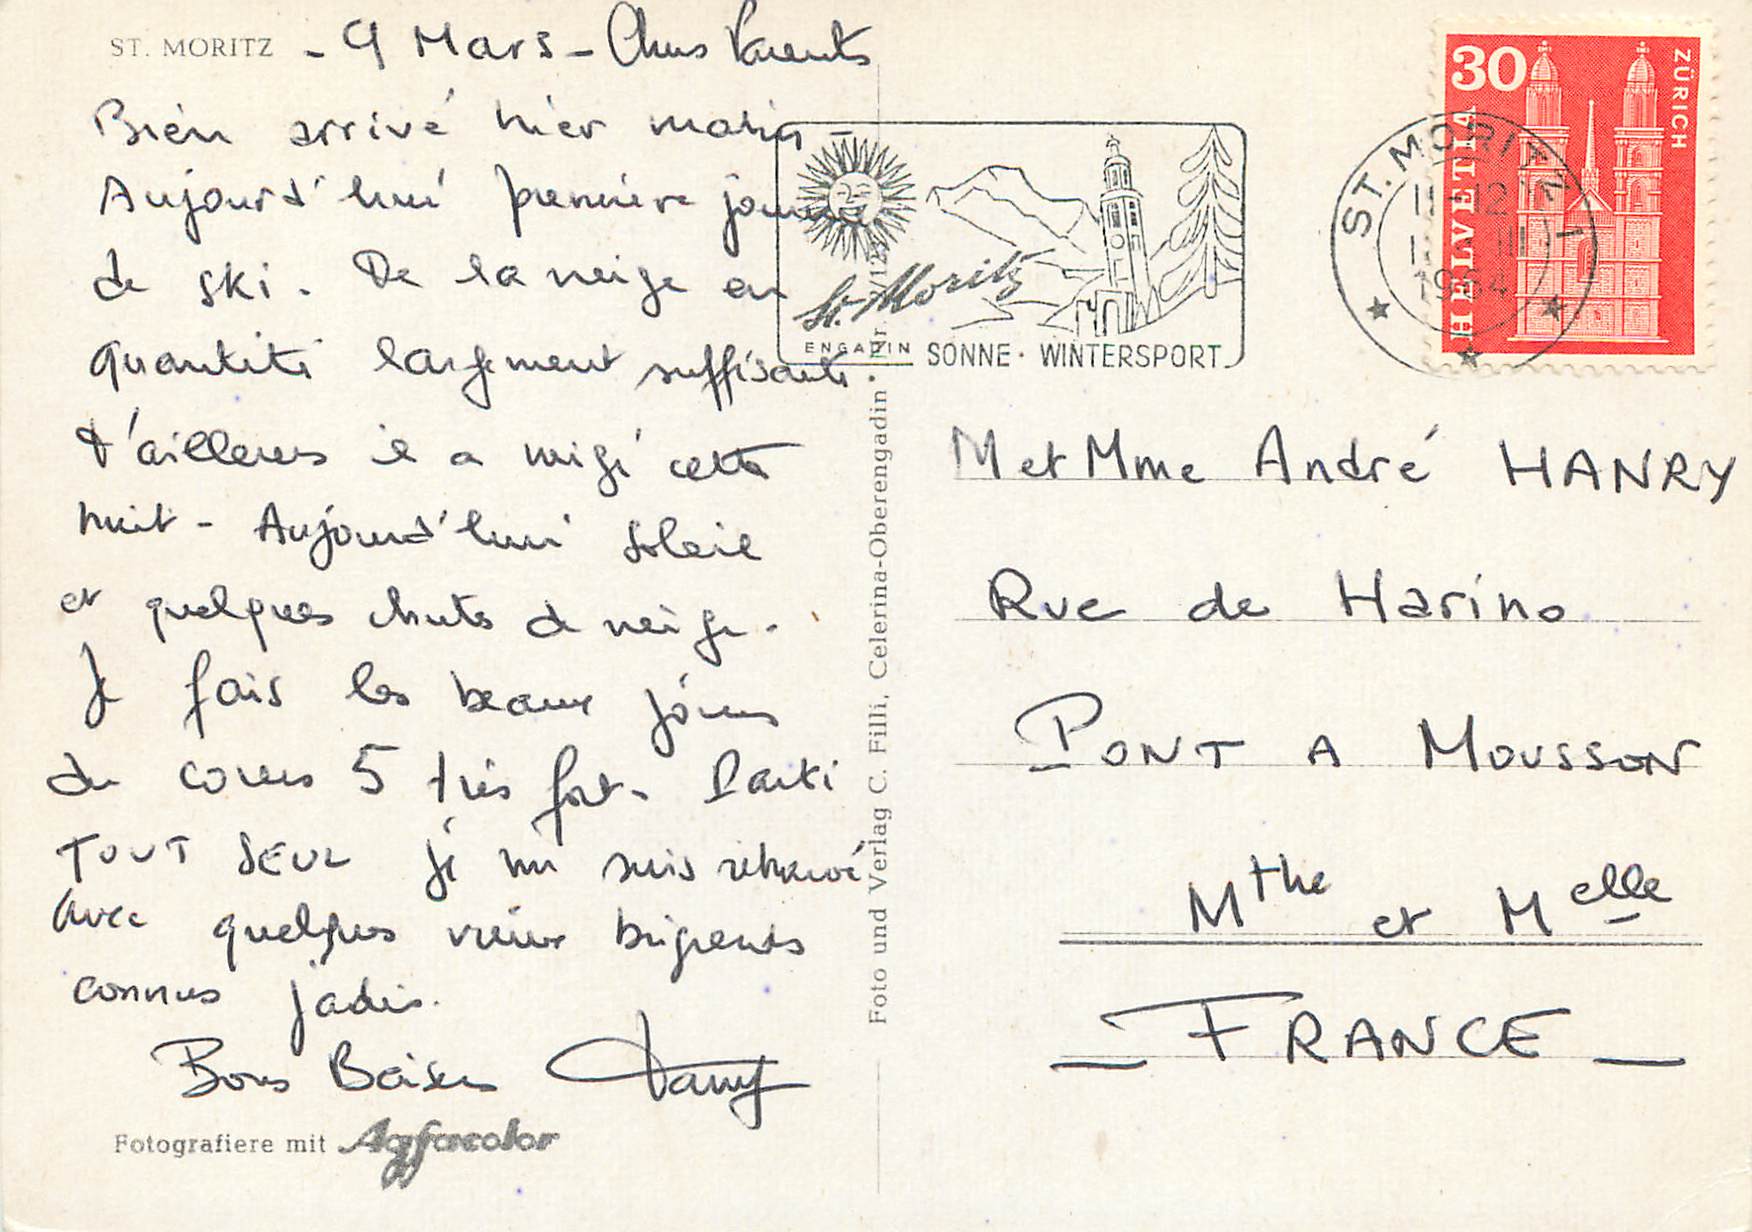 ST. MORITZ - 9 Mars - Chers Parents
Bien arrivé hier matin -
Aujourd'hui première journée
de ski. De la neige en
quantité largement suffisante.
D'ailleurs il a neigé cette
nuit - Aujourd'hui soleil
et quelques chutes de neige -
Je fais les beaux jours
du cours 5 très fort - Parti
TOUT SEUL je me suis retrouvé
avec quelques vieux brigands
connus jadis.
Bons Baisers
Fotografiere mit Agfacolor
Foto und Verlag C. Filli, Celerina-Oberengadin Nr.
St. Moritz
ENGADIN SONNE · WINTERSPORT
ST. MORITZ 1
11-12
III
1964
30
HELVETIA
ZÜRICH
M et Mme André HANRY
Rue de Harino
PONT A MOUSSON
Mthe et Melle
- FRANCE -